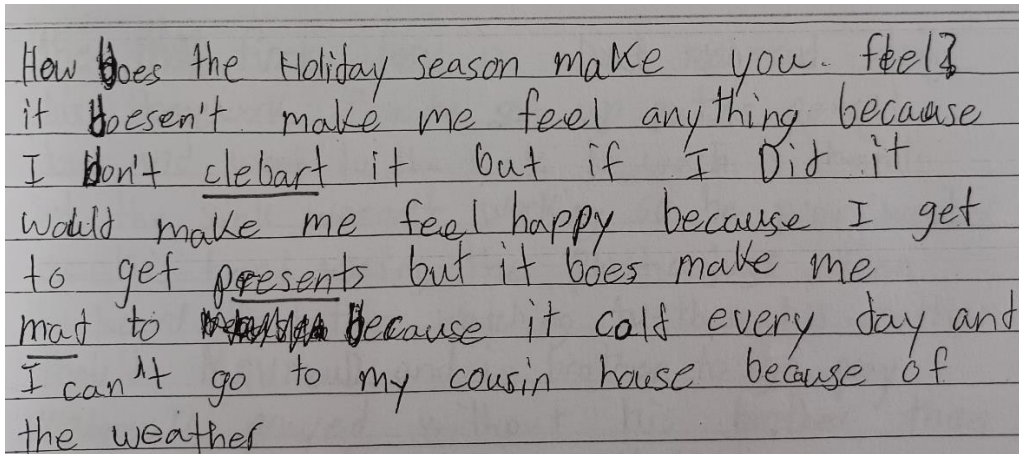 How Does the Holiday season make you. feel?
it Doesen't make me feel anything because
I Don't clebart it but if I Did it
Would make me feel happy because I get
to get presents but it boes make me
mad to because it cald every day and
I can't go to my cousin house because of
the weather